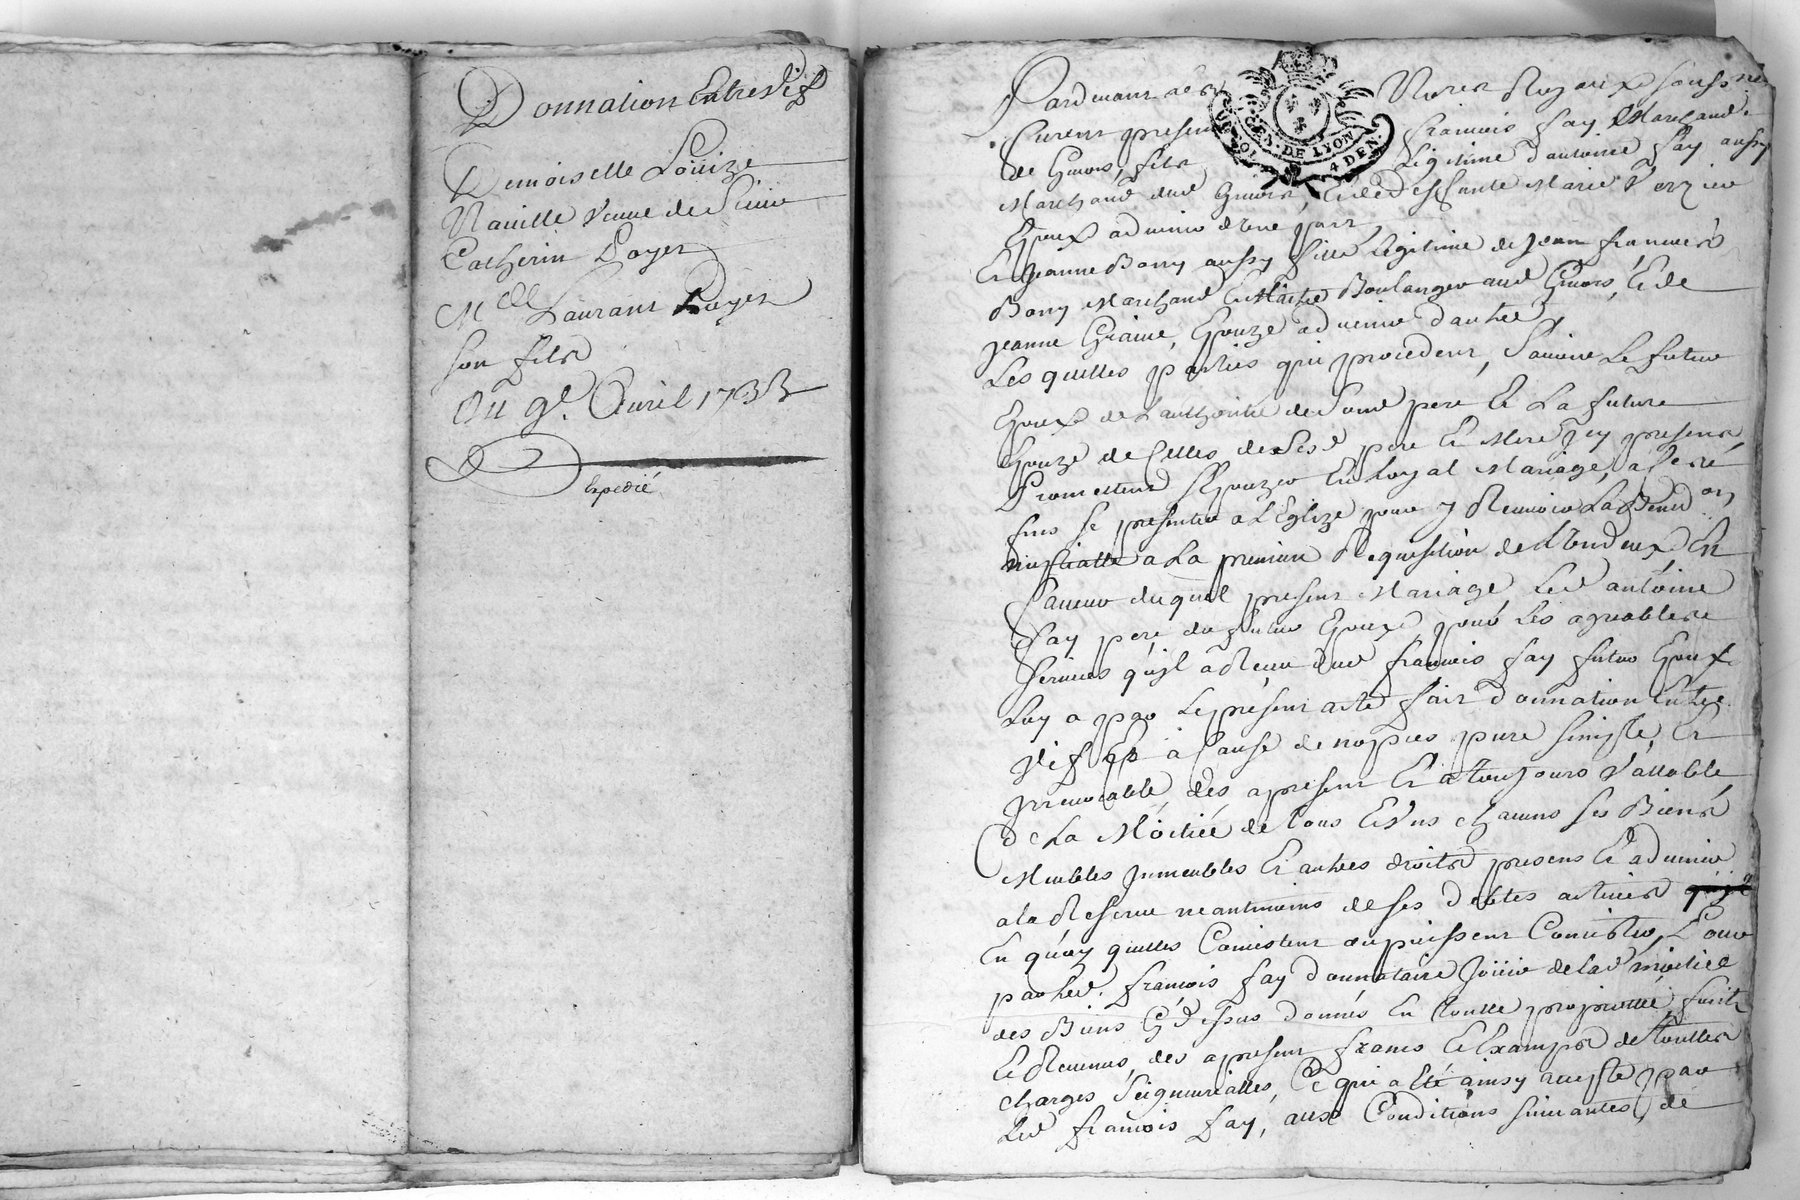 Donnation Entrevifs
Demoiselle Loüize
Naville veuve de Sieur
Catherin Poyer
Laurans Poyer
son fils
Du 9e. Avril 1733
Expedié
Pardevant les Nores Royaux soussnes
furent presens francois fay Marchand
de Givors, fils Legitime d'antoine fay aussy
Marchand dud Givors, Et de deffunte Marie Verzieu
Epoux advenir d'Une part,
Et Jeanne Bony aussy fille Legitime de Jean francois
Bony Marchand Et Maitre Boulanger aud Givors, Et de
Jeanne Epouze advenir d'autre,
Les quelles parties qui procedent, Scavoir Le futur
Epoux de L'authorité de Sond pere Et La future
Epouze de Celles de Sesd pere Et Mere Jcy presens
Promettent S'Epouzer En Loyal Mariage, a
fins se presenter a L'Eglize pour y Recevoir La Bened on
nuptialle a La premiere Requisition de L'Un d'eux, En
faveur duquel present Mariage Led antoine
fay pere du futur Epoux pour Les agreables
services qu'jl a Receu dud francois fay futur Epoux
Luy a par Le present acte fait donnation Entre
vifs Et a Cause de nopces pure simple, Et
Jrrevocable des apresent Et a toujours Vallable
De La Moitiée de tous Et Uns chacuns ses Biens
Meubles Jmmeubles Et autres droits presens Et advenir
a la Reserve neantmoins de ses debtes actives
En quoy quelles Consistent ou puissent Consister, Pour
par led. francois fay donnataire Joüir de lad moitiée
des Biens Cy dessus donnés En toutte proprieté fruits
Et Revenus, des apresent francs Et Exampts de touttes
charges Seigneurialles, Ce qui a Eté ainsy accepte par
Led francois fay, aux Conditions suivantes, de
GEN. DE LYON
4 DEN.